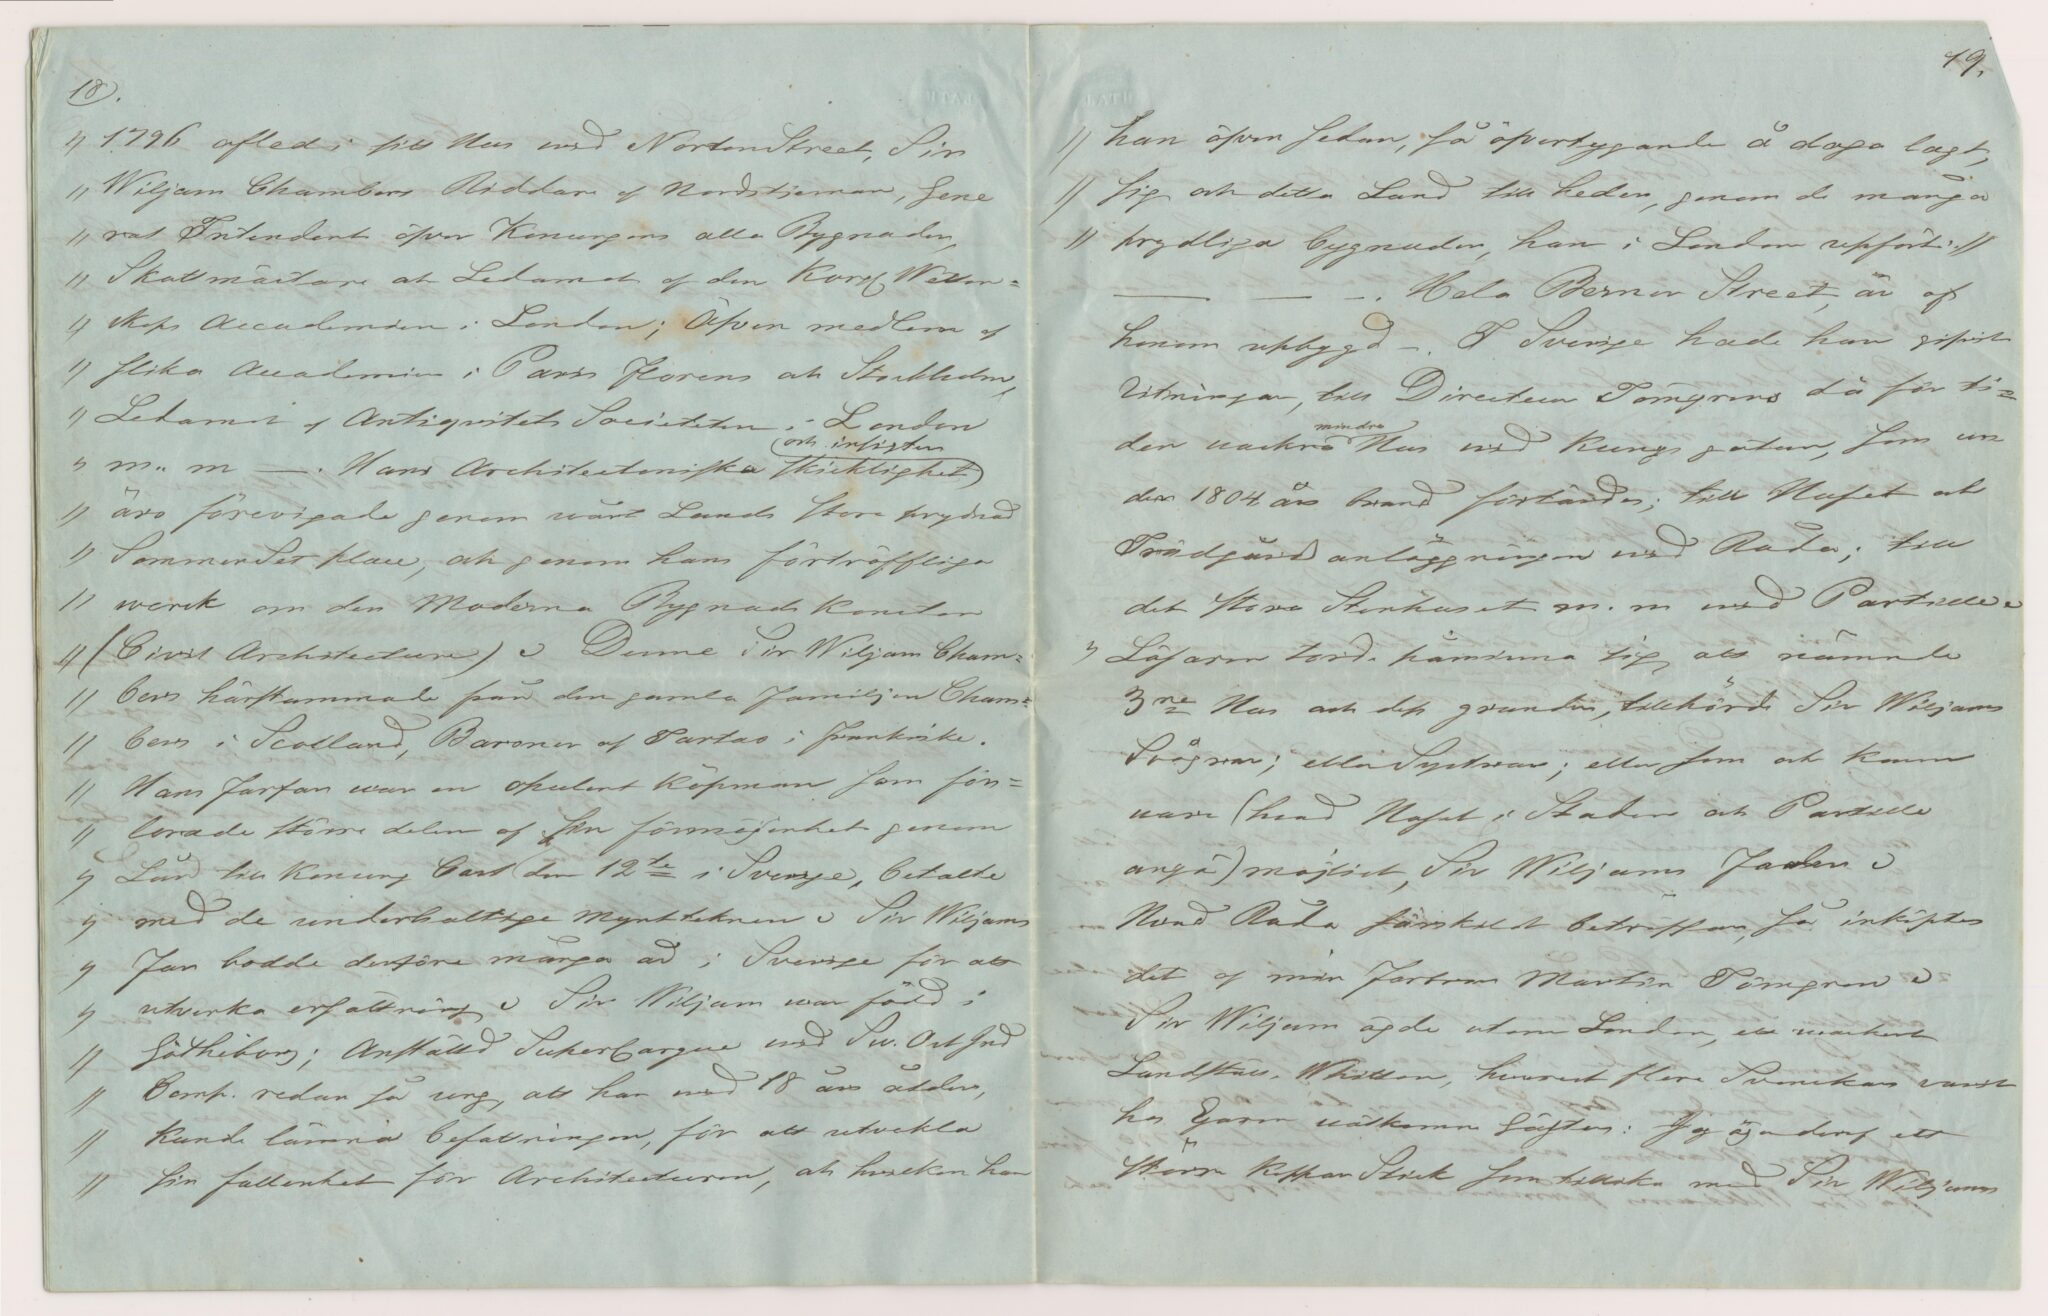 18.
" 1796 afled i sitt Hus wid Norton Street, Sir
" Wiljam Chambers Riddare af Nordstjernan, Gene
" ral Intendent öfver Konungens alla Bygnader,
" Skattmästare och Ledamot af den Kongl Wetten=
" skaps Accademien i London; Äfven medlem af
" slika Accademier i Paris Florens och Stockholm,
" Ledamot af Antiqvitets Societeten i London
och insigter
" m. m —. Hans Architectoniska skicklighet
" äro förevigade genom wårt Lands stora prydnad
" Sommerset place, och genom hans förträffliga
" werck om den Moderna Bygnads Konsten
" (Civil Architecture) Denne Sir Wiljam Cham=
" bers härstammade från den gamla Familjen Cham=
" bers i Scotland, Baroner af Tartas i Frankrike.
" Hans Farfar war en opulent Köpman som för=
" lorade större delen af sin förmögenhet genom
" Lån till Konung Carl den 12te i Sverige, betalte
" med de underhaltige Mynttecknen Sir Wiljams
" Far bodde derföre många år i Sverige för att
" utverka ersättning Sir Wiljam war född i
" Götheborg; Anställd SuperCargue wid Sv. Ost Ind
" Comp. redan så ung, att han wid 18 års ålder,
" kunde lämna befattningen, för att utveckla
" sin fallenhet för Architecturen, och hwilken han
19.
" han äfven sedan, så öfvertygande å daga lagt,
" sig och detta Land till heder, genom de många
" prydliga bygnader, han i London upfört."
— — —. Hela Berner Street, är af
honom upbygd —. I Sverige hade han gifvit
ritningar, till Directeur Törngrens då för ti=
mindre
den wackra Hus wid Kungs gatan, som un
der 1804 års brand förtärdes; till Huset och
Trädgårds anläggningen wid Råda; till
det stora Stenhuset m. m wid Partille
Läsaren torde påminna sig, att nämnde
3ne Hus och dess grunder, tillhörde Sir Wiljams
Svågrar; eller Systrar; eller som och kunn
vara (hwad Huset i Staden och Partille
angå) möjligt, Sir Wiljams Fader
Hwad Råda särskildt beträffar, så inköptes
det af min Farbror Martin Törngren
Sir Wiljam ägde utom London, ett wackert
Landställe Whitton, hwarest flere Svenskar warit
hos Egaren wälkomne Gäster: Jag äger deraf ett
större Koppar Stick som tillika med Sir Wiljams